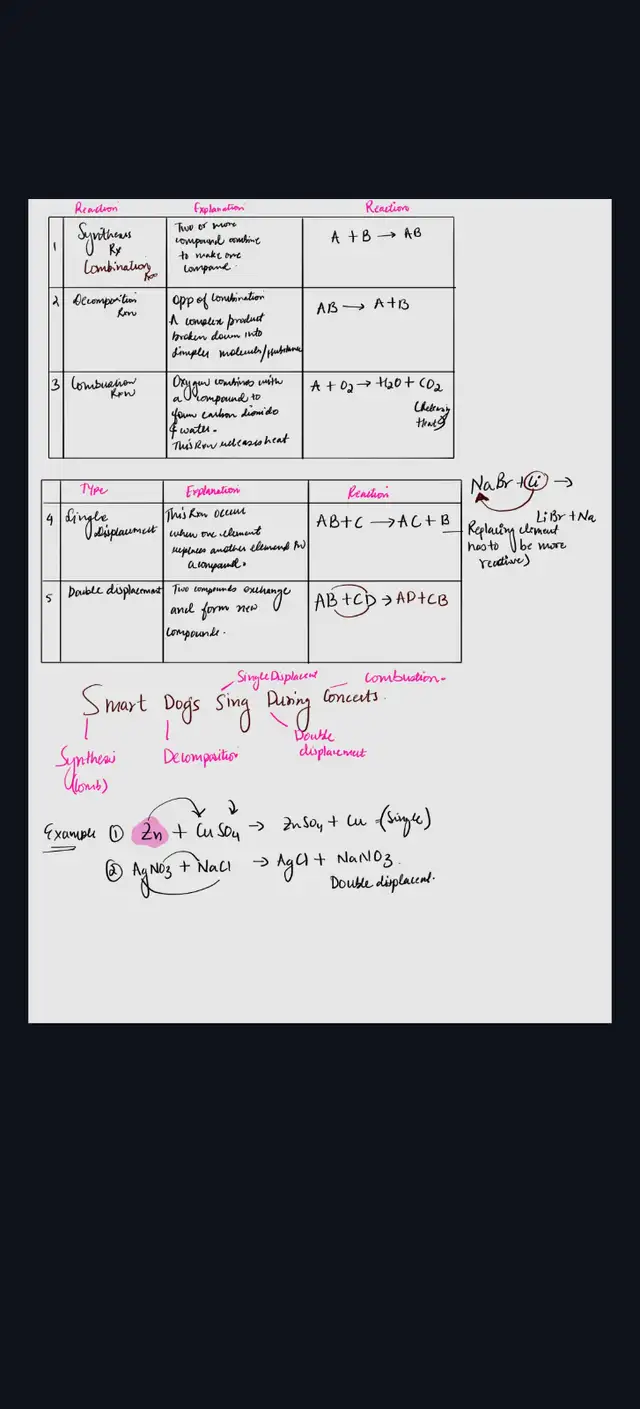 Reaction Explanation Reactions
1 Synthesis Rx Combination Rxn
Two or more
compound combine
to make one
compound.
A + B → AB
2 Decomposition Rxn
opp of Combination
A complex product
broken down into
simpler molecule/substance
AB → A+B
3 Combustion Rxn
Oxygen combines with
a compound to
form carbon dioxide
& water.
This Rxn releases heat
A + O2 → H2O + CO2
Heat
Type Explanation Reaction
4 Single
Displacement
This Rxn occurs
when one element
replaces another element in
a compound.
AB+C → AC + B
NaBr + Li →
LiBr + Na
Replacing element
has to be more
reactive)
5 Double displacement
Two compounds exchange
and form new
compounds.
AB+CD → AD+CB
Single Displacent
combustion-
Smart Dogs Sing During Concerts.
Synthesis
(comb)
Decomposition
Double
displacement
Example ① Zn + CuSO4 → ZnSO4 + Cu (Single)
② AgNO3 + NaCl → AgCl + NaNO3.
Double displacent.